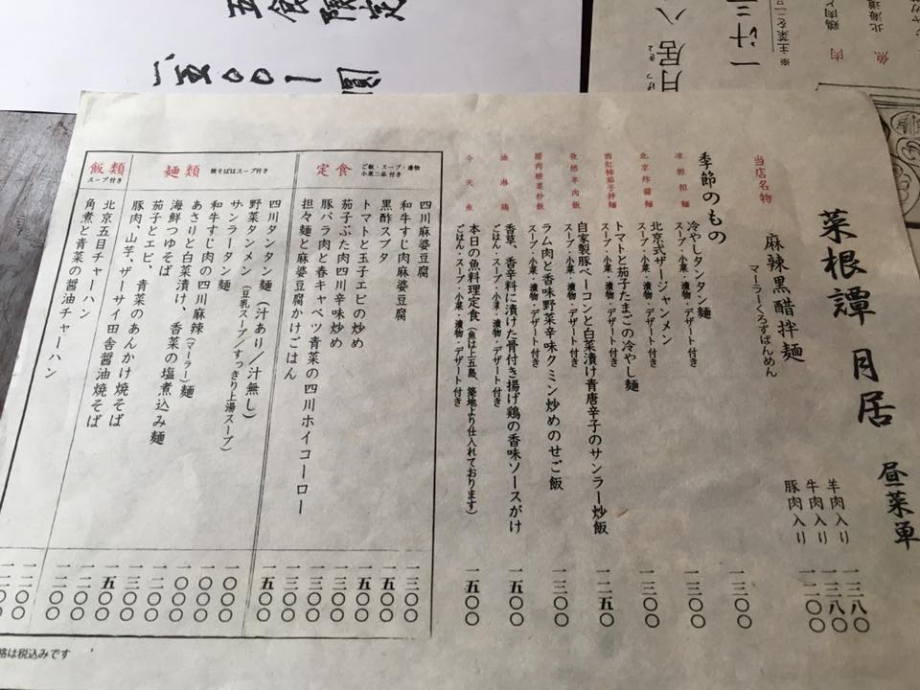 菜根譚 月居 昼菜単
当店名物
麻辣黒醋拌麺
マーラーくろずばんめん
羊肉入り 一三八〇
牛肉入り 一三八〇
豚肉入り 一二〇〇
季節のもの
冷やしタンタン麺 一三〇〇
スープ・小菜・漬物・デザート付き
北京炸醤麺
北京式ザージャンメン 一三〇〇
スープ・小菜・漬物・デザート付き
トマトと茄子たまごの冷やし麺 一二五〇
スープ・小菜・漬物・デザート付き
自家製豚ベーコンと白菜漬け青唐辛子のサンラー炒飯 一三〇〇
スープ・小菜・漬物・デザート付き
ラム肉と香味野菜辛味クミン炒めのせご飯 一三〇〇
スープ・小菜・漬物・デザート付き
油淋鶏
香草、香辛料に漬けた骨付き揚げ鶏の香味ソースがけ 一五〇〇
ごはん・スープ・小菜・漬物・デザート付き
今天魚
本日の魚料理定食（魚は上五島、築地より仕入れております） 一五〇〇
ごはん・スープ・小菜・漬物・デザート付き
定食
ご飯・スープ・漬物
小菜二品付き
四川麻婆豆腐 一三〇〇
和牛すじ肉麻婆豆腐 一五〇〇
黒酢スブタ 一五〇〇
トマトと玉子エビの炒め
茄子ぶた肉四川辛味炒め
豚バラ肉と春キャベツ青菜の四川ホイコーロー
担々麺と麻婆豆腐かけごはん 一五〇〇
麺類
焼そばはスープ付き
四川タンタン麺（汁あり／汁無し）
野菜タンメン（豆乳スープ／すっきり上湯スープ）
サンラータン麺
和牛すじ肉の四川麻辣（マーラー）麺
あさりと白菜漬け、香菜の塩煮込み麺
海鮮つゆそば
茄子とエビ、青菜のあんかけ焼そば
豚肉、山芋、ザーサイ田舎醤油焼そば
飯類
スープ付き
北京五目チャーハン
角煮と青菜の醤油チャーハン
格は税込みです
五食限定
一、五〇〇円
月居
一汁三
※主菜を二
鶏肉と
北海道
肉
魚